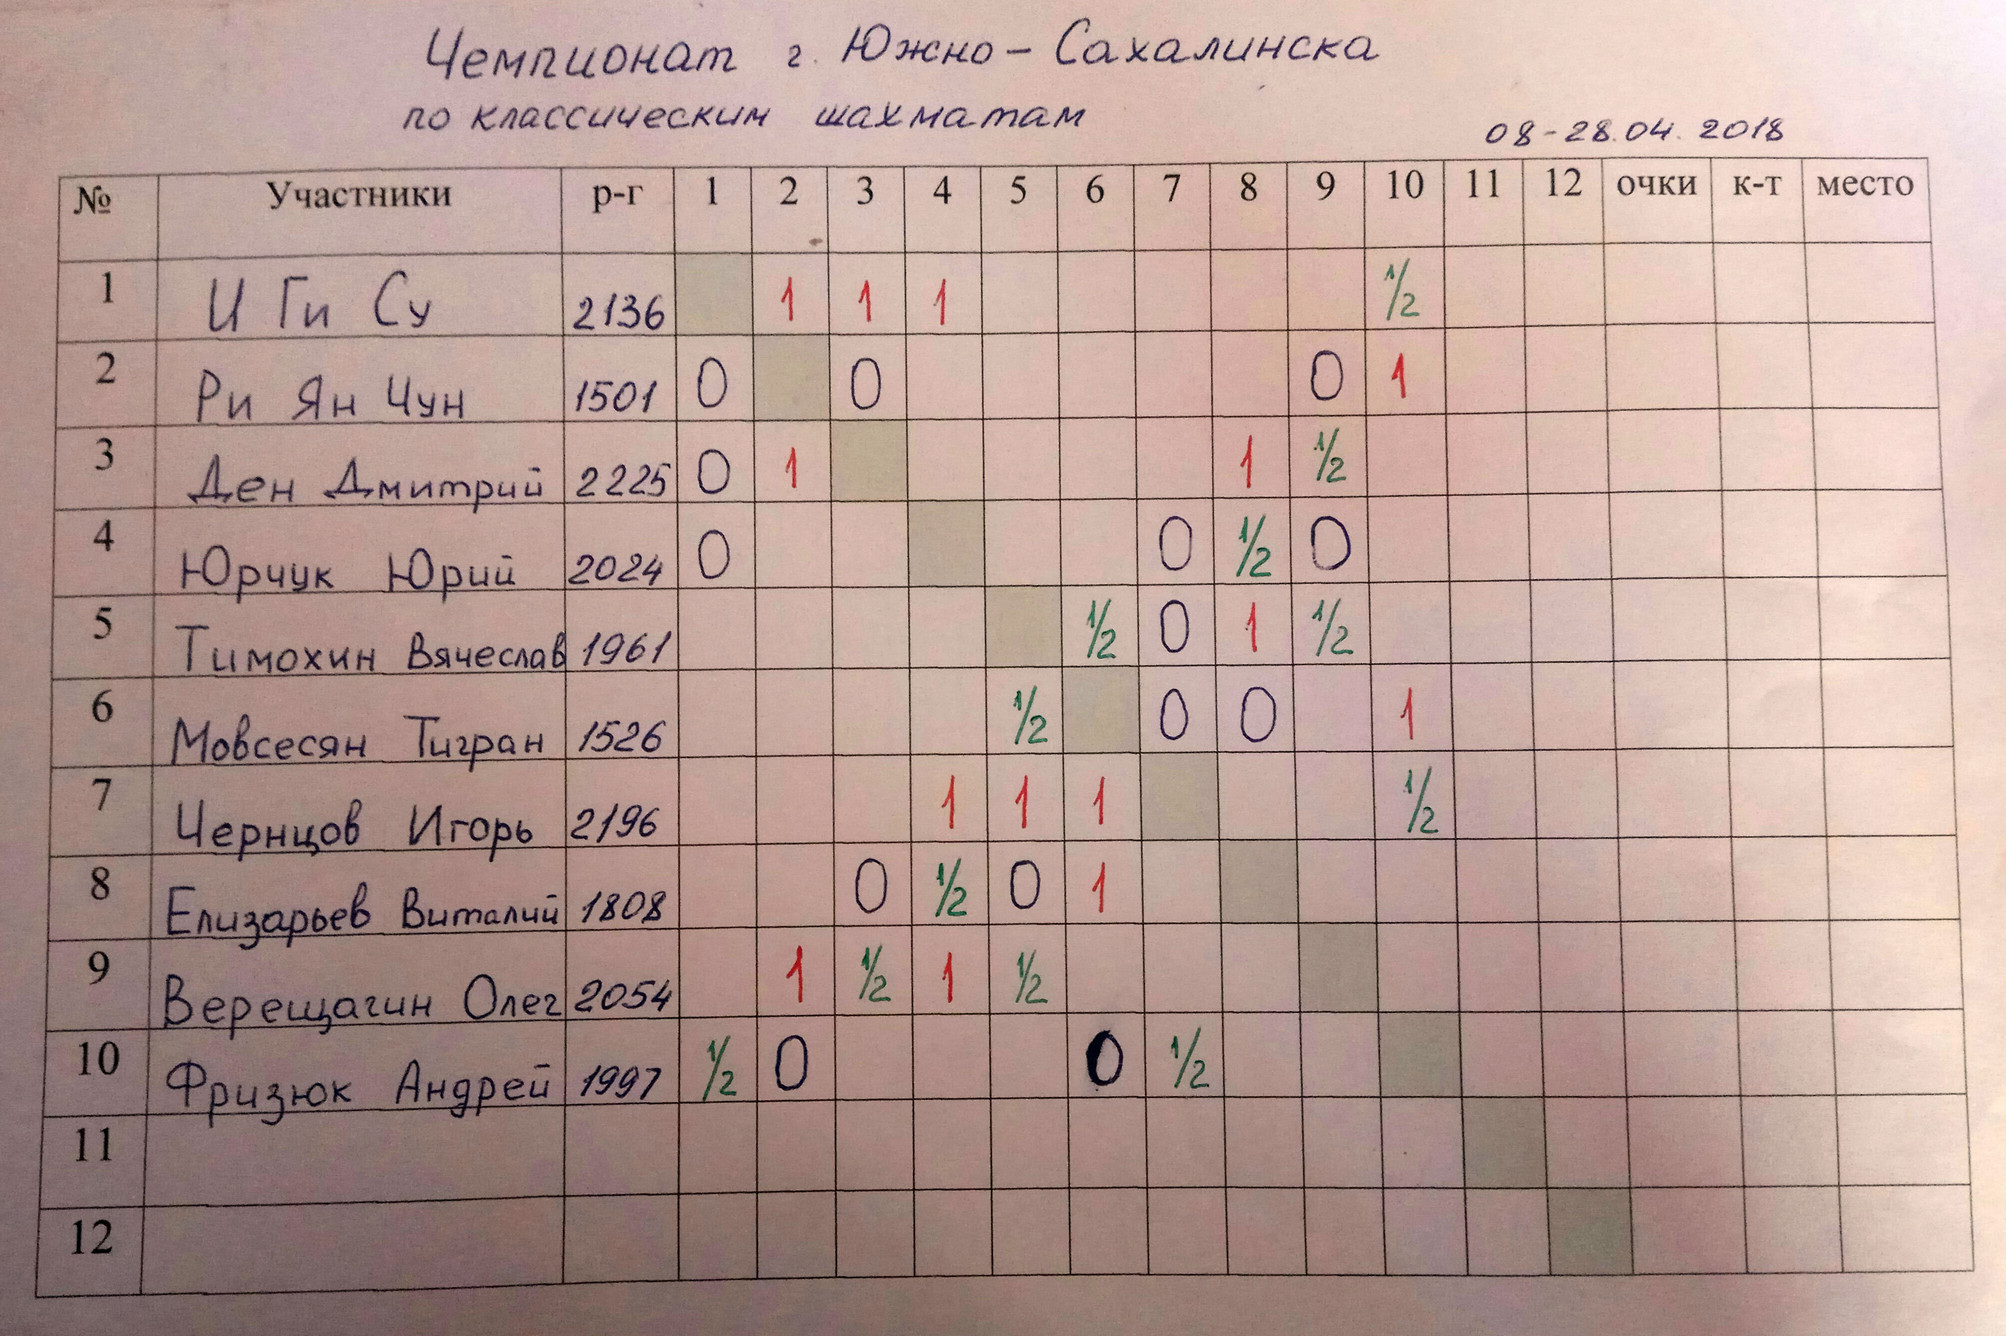 Чемпионат г. Южно-Сахалинска
по классическим шахматам
08-28.04.2018
№ Участники р-г 1 2 3 4 5 6 7 8 9 10 11 12 очки к-т место
1 И Ги Су 2136 1 1 1 1/2
2 Ри Ян Чун 1501 0 0 0 1
3 Ден Дмитрий 2225 0 1 1 1/2
4 Юрчук Юрий 2024 0 0 1/2 0
5 Тимохин Вячеслав 1961 1/2 0 1 1/2
6 Мовсесян Тигран 1526 1/2 0 0 1
7 Чернцов Игорь 2196 1 1 1 1/2
8 Елизарьев Виталий 1808 0 1/2 0 1
9 Верещагин Олег 2054 1 1/2 1 1/2
10 Фризюк Андрей 1997 1/2 0 0 1/2
11
12